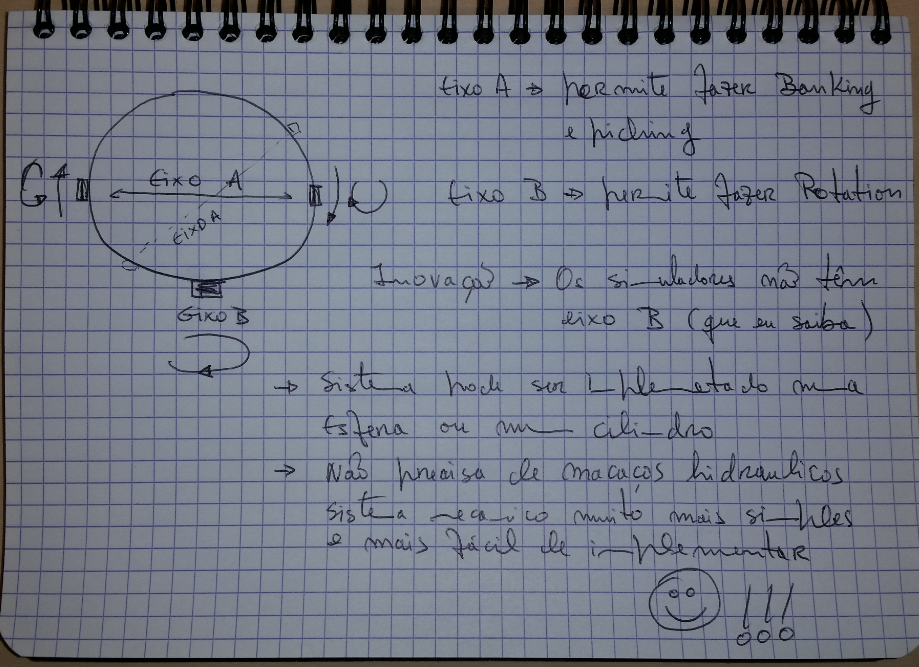 Eixo A → permite fazer Banking
e piching
Eixo A
Eixo A
Eixo B → permite fazer Rotation
Inovação → Os simuladores não têm
eixo B (que eu saiba)
Eixo B
→ Sistema pode ser implementado numa
Esfera ou num cilindro
→ Não precisa de macacos hidraulicos
sistema mecanico muito mais simples
e mais fácil de implementar
!!!